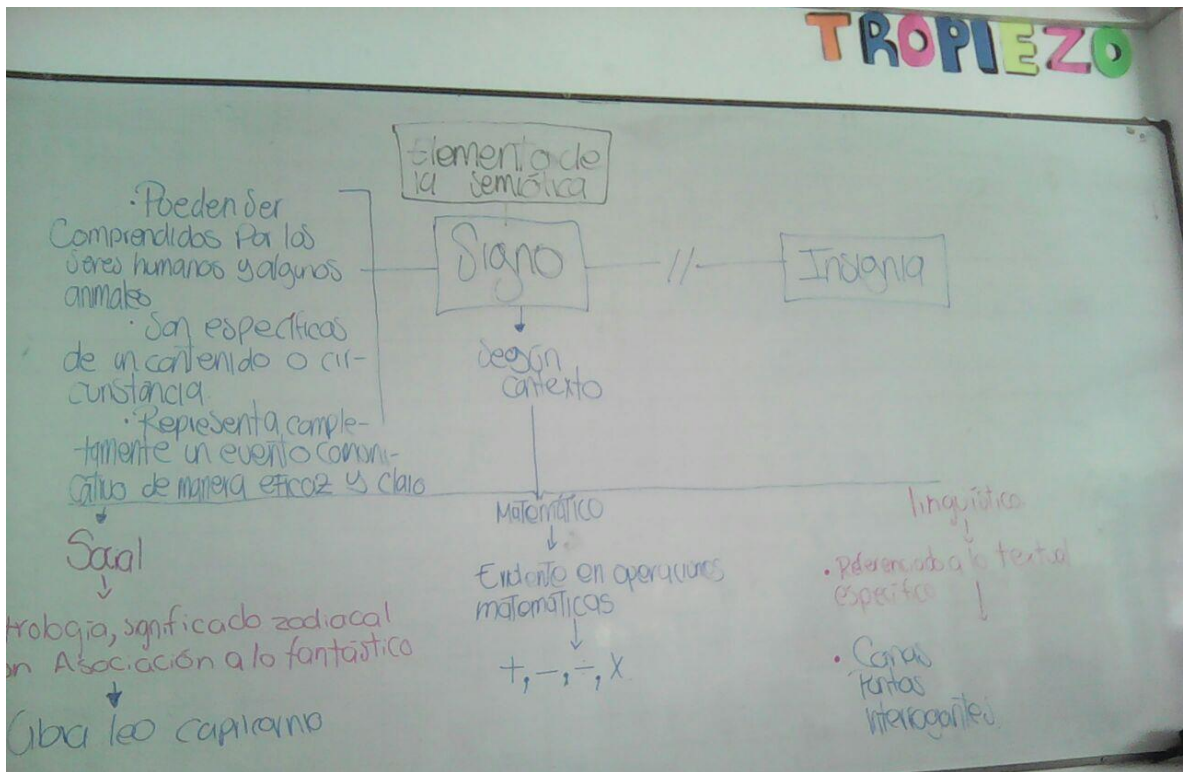 TROPIEZO
Elemento de
la Semiótica
Signo
//
Insignia
• Pueden Ser
Comprendidos Por los
seres humanos y algunos
animales
• Son especificas
de un contenido o cir-
cunstancia
• Representa comple-
tamente un evento comuni-
cativo de manera eficaz y claro
Según
contexto
Social
trologia, significado zodiacal
on Asociación a lo fantástico
libra leo capricornio
Matemático
Evidente en operaciones
matemáticas
+, -, ÷, x
linguistico
• Referenciado a lo textual
especifico
• Comas
Puntos
interrogantes